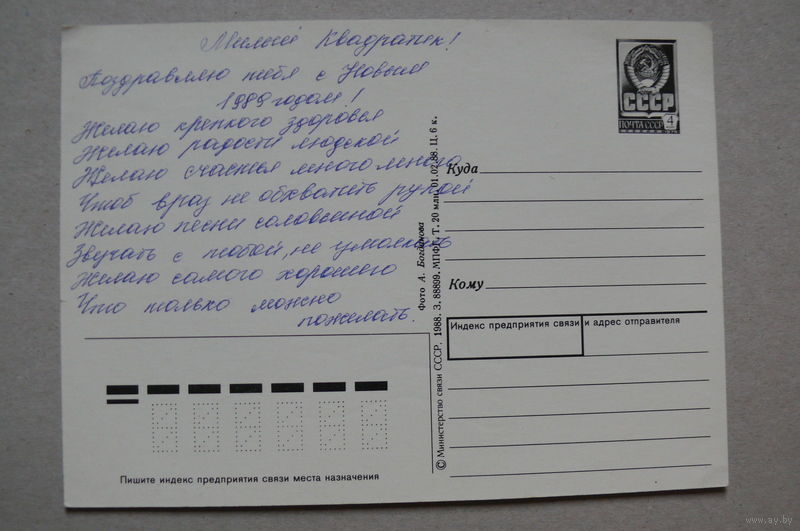 Милый Квадратик!
Поздравляю тебя с Новым
1989 годом!
Желаю крепкого здоровья
Желаю радости людской
Желаю счастья много много
Чтоб враз не обхватить рукой
Желаю песни соловьиной
Звучать с тобой, не умолкать
Желаю самого хорошего
Что только можно
пожелать.
СССР
ПОЧТА СССР 4
Куда
Кому
Индекс предприятия связи и адрес отправителя
Фото А. Богданова
© Министерство связи СССР. 1988. З. 88809. МПФГ. Т. 20 млн. 01.02.88. Ц. 6 к.
Пишите индекс предприятия связи места назначения
www.ay.by